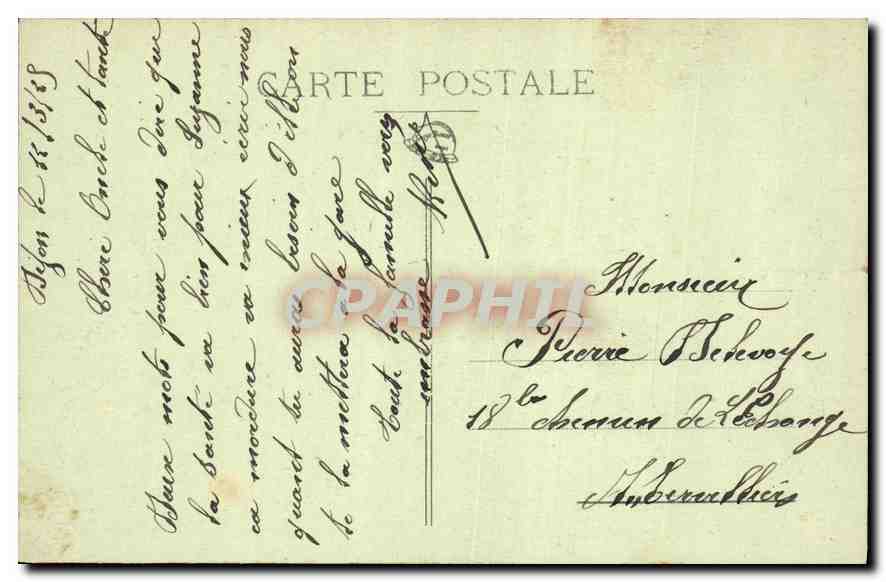 CARTE POSTALE
Dijon le 15/3/25
Chere Oncle et tante
Deux mots pour vous dire que
la santé va bien pour Suzanne
ca mordure va mieux écrir nous
quant tu auras besoin d'
te la mettera a la gare
toute la famille vous
embrasse
Monsieur
Pierre Delevoye
18 bis chemin de l'Echange
Aubervilliers
CARAPHIL